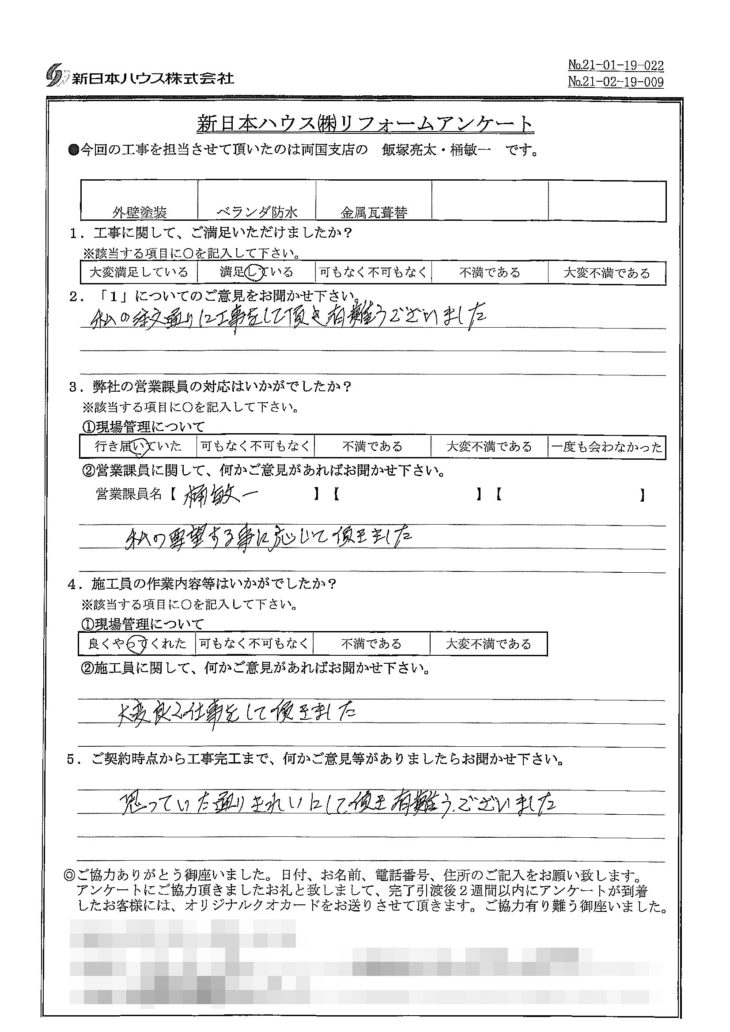 新日本ハウス株式会社
No.21-01-19-022
No.21-02-19-009
新日本ハウス㈱リフォームアンケート
●今回の工事を担当させて頂いたのは両国支店の 飯塚亮太・桶敏一 です。
外壁塗装 ベランダ防水 金属瓦葺替
1．工事に関して、ご満足いただけましたか？
※該当する項目に○を記入して下さい。
大変満足している 満足している 可もなく不可もなく 不満である 大変不満である
2．「1」についてのご意見をお聞かせ下さい。
私の注文通りに工事をして頂き有難うございました
3．弊社の営業課員の対応はいかがでしたか？
※該当する項目に○を記入して下さい。
①現場管理について
行き届いていた 可もなく不可もなく 不満である 大変不満である 一度も会わなかった
②営業課員に関して、何かご意見があればお聞かせ下さい。
営業課員名【 桶敏一 】【 】【 】
私の要望する事に応じて頂きました
4．施工員の作業内容等はいかがでしたか？
※該当する項目に○を記入して下さい。
①現場管理について
良くやってくれた 可もなく不可もなく 不満である 大変不満である
②施工員に関して、何かご意見があればお聞かせ下さい。
大変良い仕事をして頂きました
5．ご契約時点から工事完工まで、何かご意見等がありましたらお聞かせ下さい。
思っていた通りきれいにして頂き有難うございました
◎ご協力ありがとう御座いました。日付、お名前、電話番号、住所のご記入をお願い致します。
アンケートにご協力頂きましたお礼と致しまして、完了引渡後2週間以内にアンケートが到着
したお客様には、オリジナルクオカードをお送りさせて頂きます。ご協力有り難う御座いました。